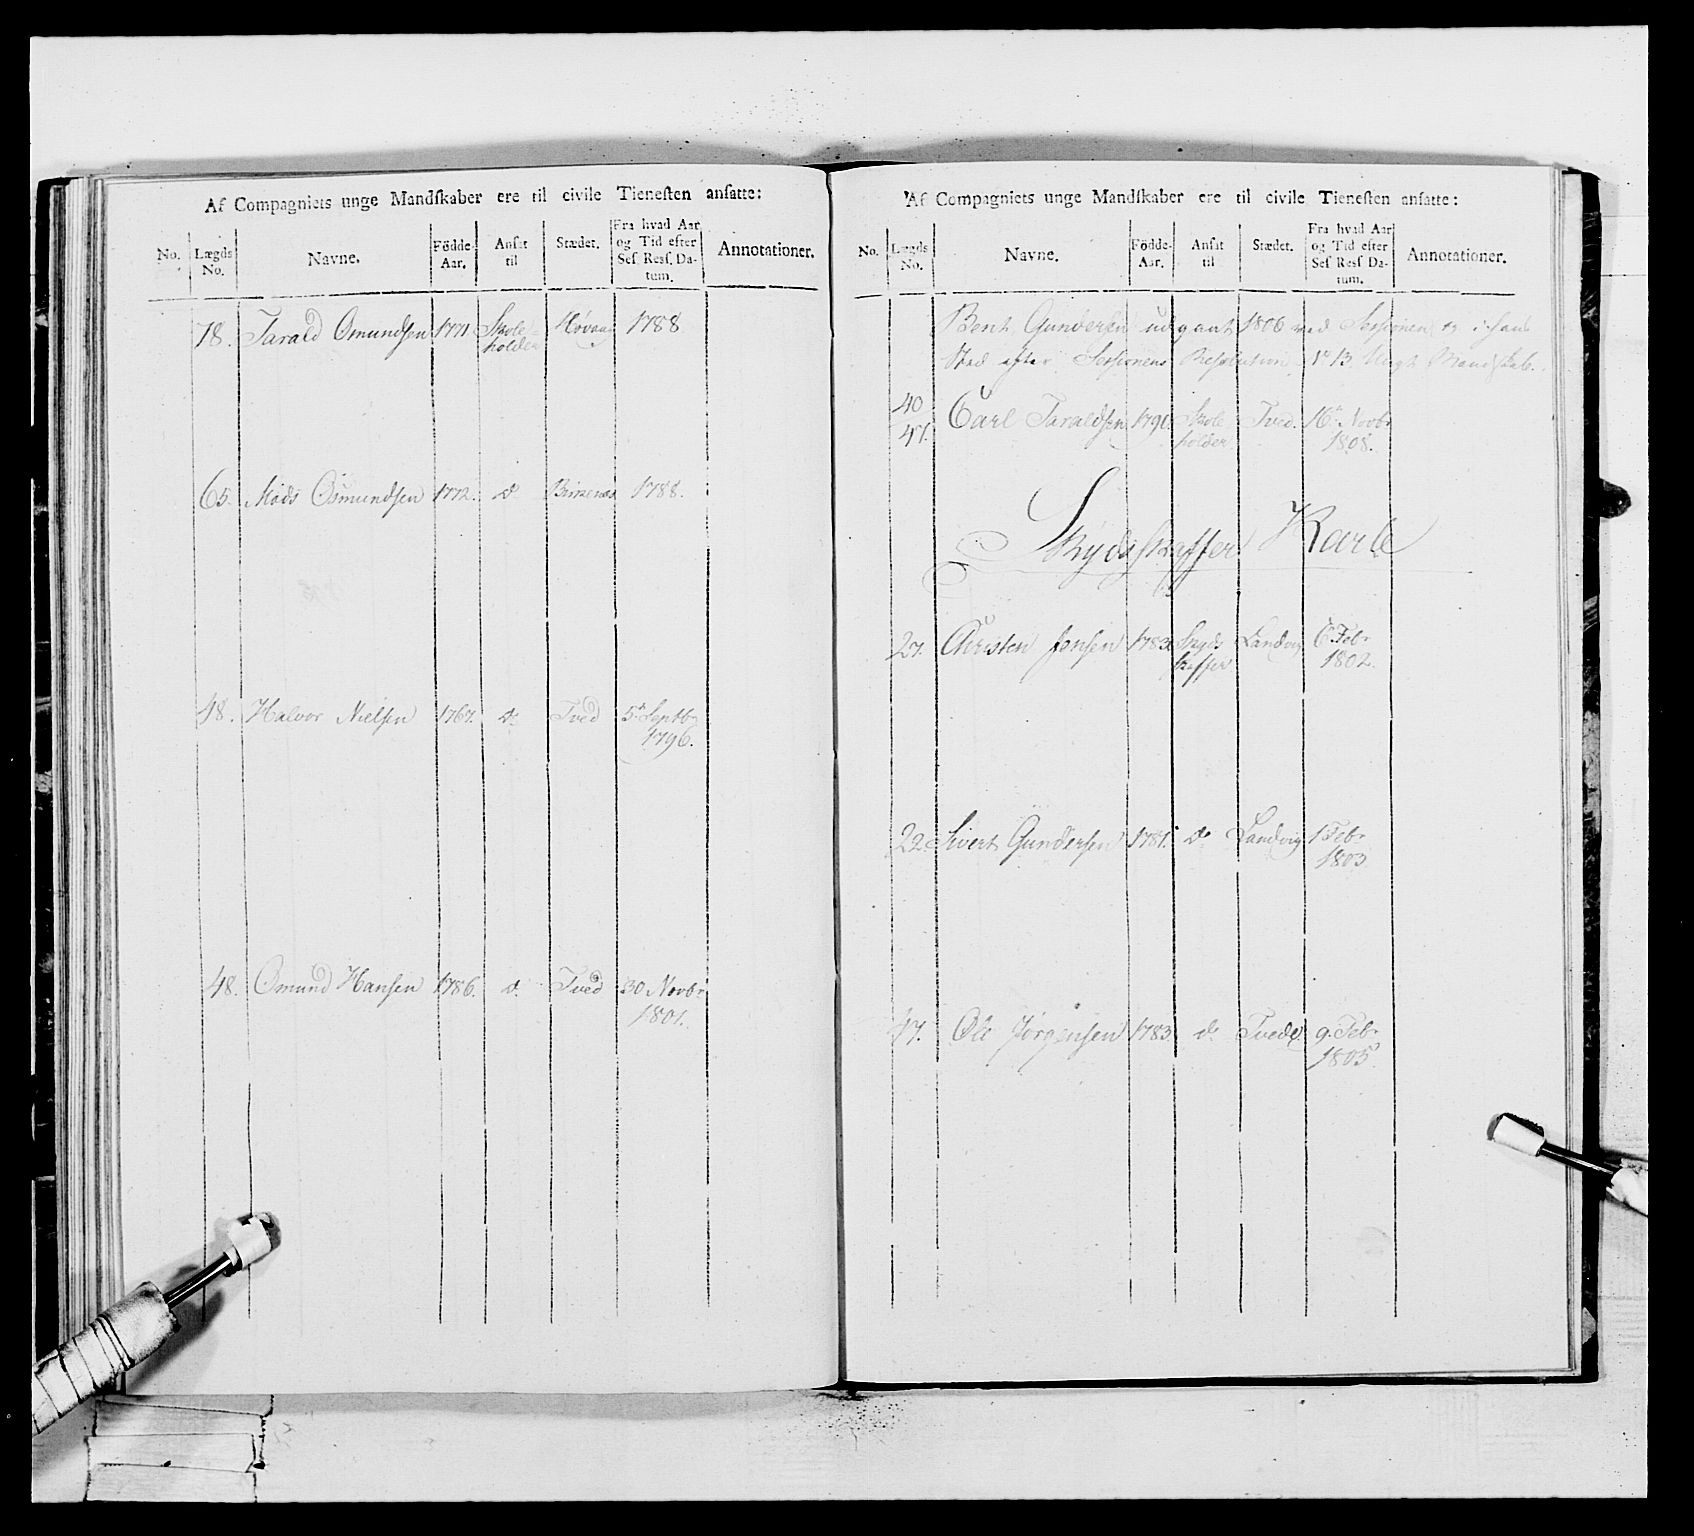 Af Compagniets unge Mandſkaber ere til civile Tieneſten anſatte:
No. Lægds No. Navne. Födde-Aar. Anſat til Stædet. Fra hvad Aar og Tid efter Seſ. Reſſ. Datum. Annotationer.
78. Tarald Osmundsen 1771 Skole-holder Høvaag 1788
65. Mads Osmundsen 1772. do Birkenæs 1788.
48. Halvor Nielsen 1767. do Tved 5te Septbr 1796.
48. Omund Hansen 1786. do Tved 30 Novbr 1801.
Af Compagniets unge Mandſkaber ere til civile Tieneſten anſatte:
No. Lægds No. Navne. Födde-Aar. Anſat til Stædet. Fra hvad Aar og Tid efter Seſ. Reſſ. Datum. Annotationer.
Bent Gundersen udgaat 1806 ved Sessionen og i hans
Sted efter Sessionens Resolution No 13 Ungt Mandskab.
40
47. Carl Taraldsen 1790 Skole holder Tved. 16de Novbr 1808.
Skydsskaffer Karle
27. Christen Jensen 1783 Skyds skaffer Landvig 6 Febr 1802.
22. Sivert Gundersen 1781. do Landvig 1 Febr 1803
47. Ole Jørgensen 1783. do Tvede. 9. Febr 1805